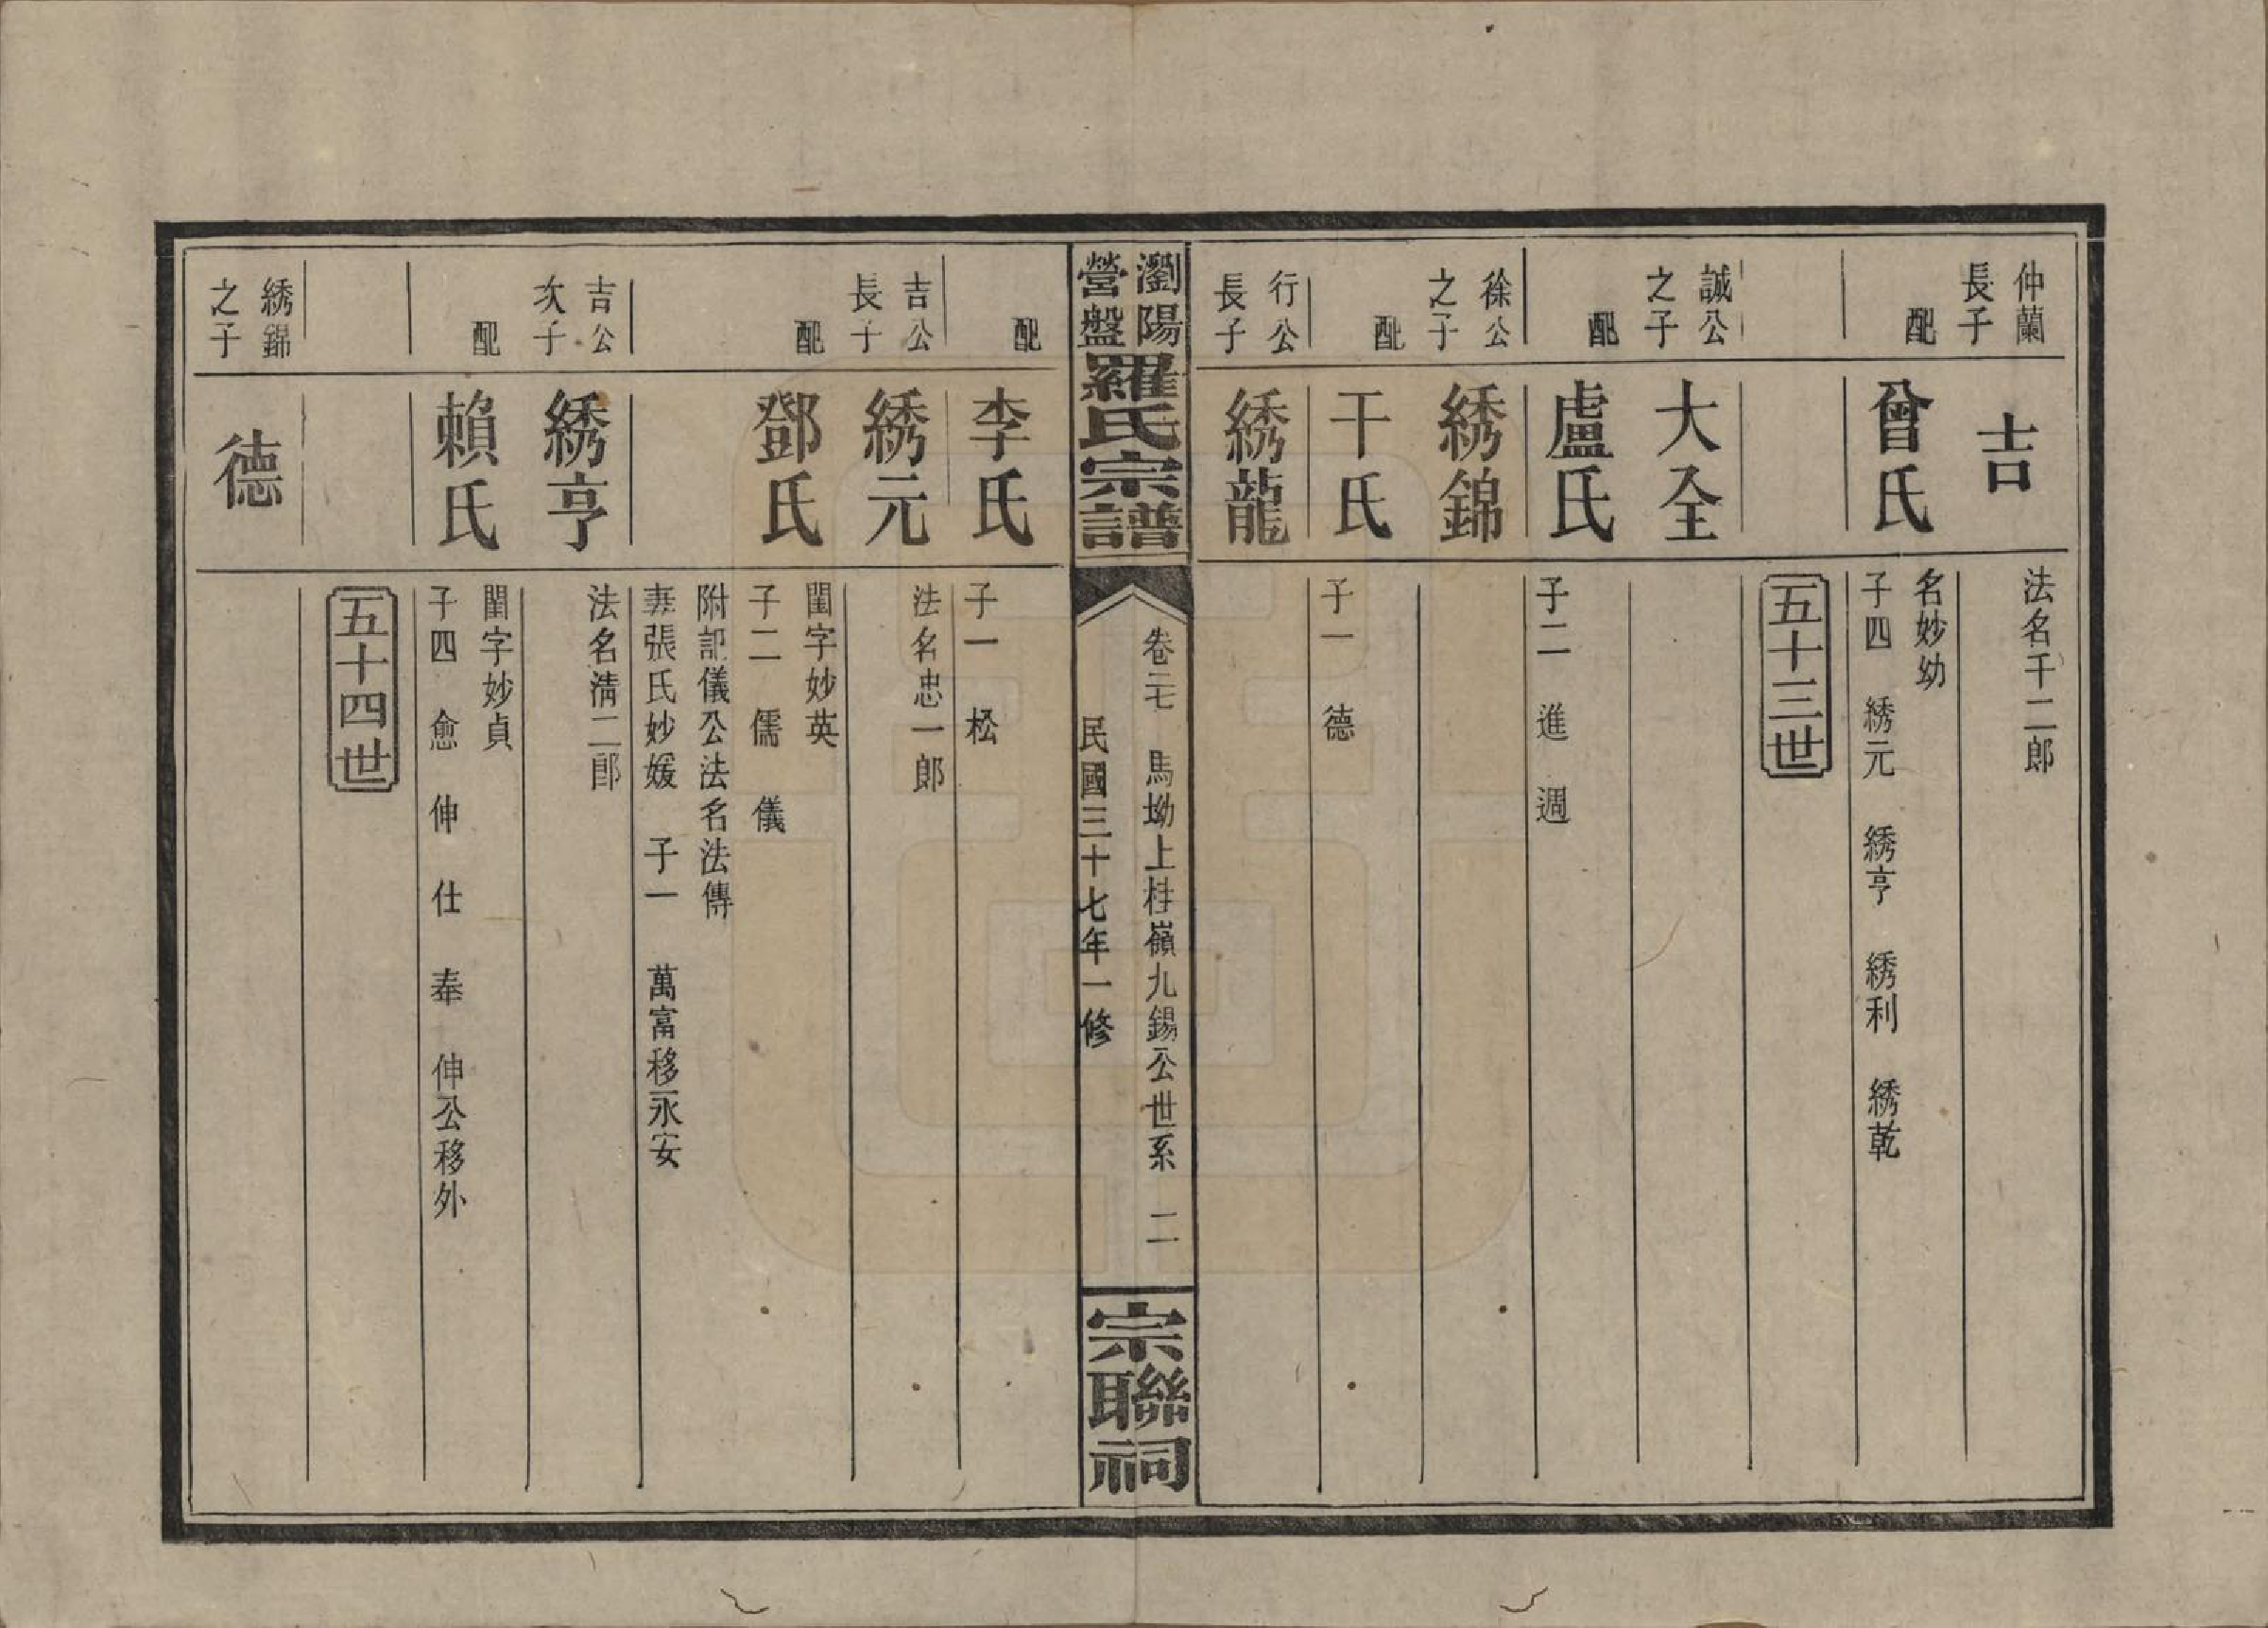 仲蘭
長子
吉
法名千二郎
配
曾氏
名妙幼
子四 綉元 綉亨 綉利 綉乾
五十三世
誠公
之子
大全
配
盧氏
子二 進 週
徐公
之子
綉錦
配
干氏
子一 德
行公
長子
綉龍
瀏陽
營盤
羅氏宗譜
卷二七 馬坳上桂嶺九錫公世系 二
民國三十七年一修
宗聯祠
配
李氏
子一 松
吉公
長子
綉元
法名忠一郎
配
鄧氏
閨字妙英
子二 儒 儀
附記儀公法名法傳
妻張氏妙媛 子一 萬富移永安
吉公
次子
綉亨
法名淸二郎
配
賴氏
閨字妙貞
子四 愈 伸 仕 奉 伸公移外
五十四世
綉錦
之子
德